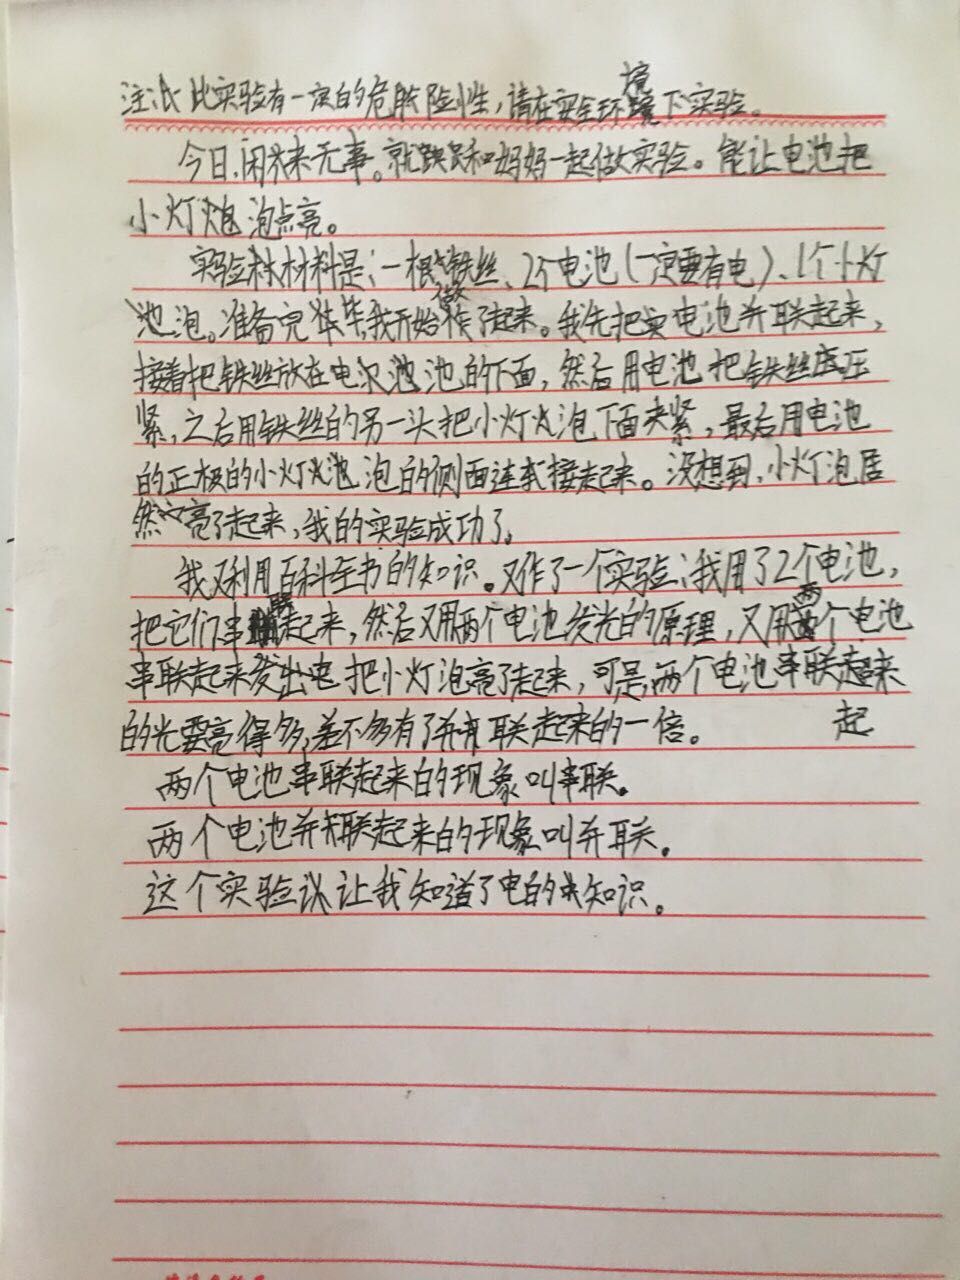 注: 此实验有一定的危险性，请在安全环境下实验。
今日，闲来无事。就跟和妈妈一起做实验。能让电池把
小灯泡点亮。
实验材料是：一根铁丝、2个电池（一定要有电）、1个小灯
泡。准备完毕，我开始做了起来。我先把电池并联起来，
接着把铁丝放在电池的下面，然后用电池把铁丝压
紧，之后用铁丝的另一头把小灯泡下面夹紧，最后用电池
的正极的小灯泡的侧面连接起来。没想到，小灯泡居
然亮了起来，我的实验成功了。
我又利用百科全书的知识。又作了一个实验：我用了2个电池，
把它们串联起来，然后又用两个电池发光的原理，又用两个电池
串联起来发出电把小灯泡亮了起来，可是，两个电池串联起来
的光要亮得多，差不多有了并联起来的一倍。
两个电池串联起来的现象叫串联。
两个电池并联起来的现象叫并联。
这个实验让我知道了电的知识。